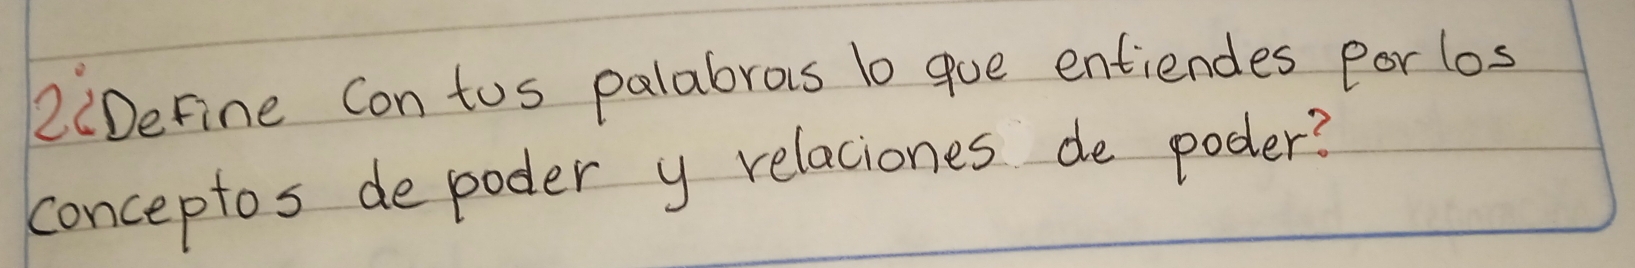 2¿Define con tus palabras lo que entiendes por los
conceptos de poder y relaciones de poder?